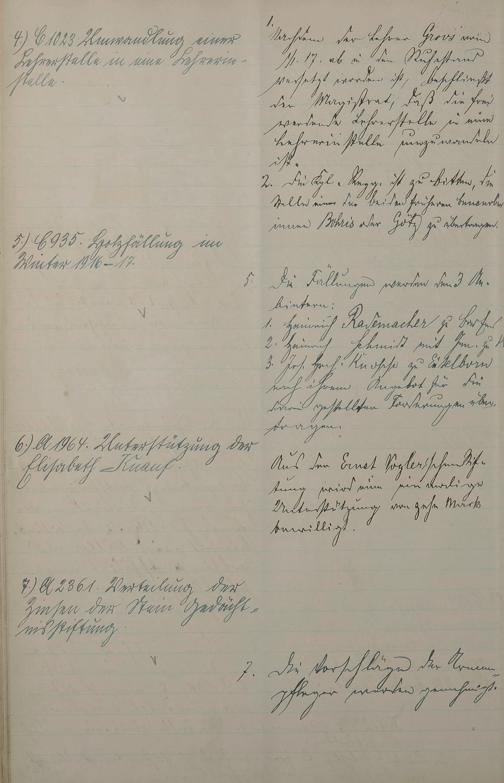 4) C 1023 Umwandlung einer
Lehrerstelle in eine Lehrerin-
stelle.
1.
Nachdem der Lehrer Grovs vom
1/1. 17. ab in den Ruhestand
versetzt worden ist, beschließt
der Magistrat, daß die frei
werdende Lehrerstelle in eine
Lehrerinstelle umzuwandeln
ist.
2. Die Kgl. Regg. ist zu bitten, die
Stelle einer der beiden früheren Bewerbe
innen oder Götz zu übertragen.
5) C 935. Holzfällung im
Winter 1916-17.
5. Die Fällungen werden den 3 Ar-
beitern:
1. Heinrich Rademacher zu
2. Heinrich Schmidt mit zu
3. Jos. zu Eikelborn
nach ihrem Angebot für die
darin gestellten Forderungen über-
tragen.
6) A 1964. Unterstützung der
Elisabeth Knauf.
Aus der Ernst Stif-
tung wird eine einmalige
Unterstützung von zehn Mark
bewilligt.
7) A 2361. Verteilung der
Zinsen der Stein Gedächt-
nisstiftung
7. Die Vorschläge der Armen-
pfleger wurden genehmigt.